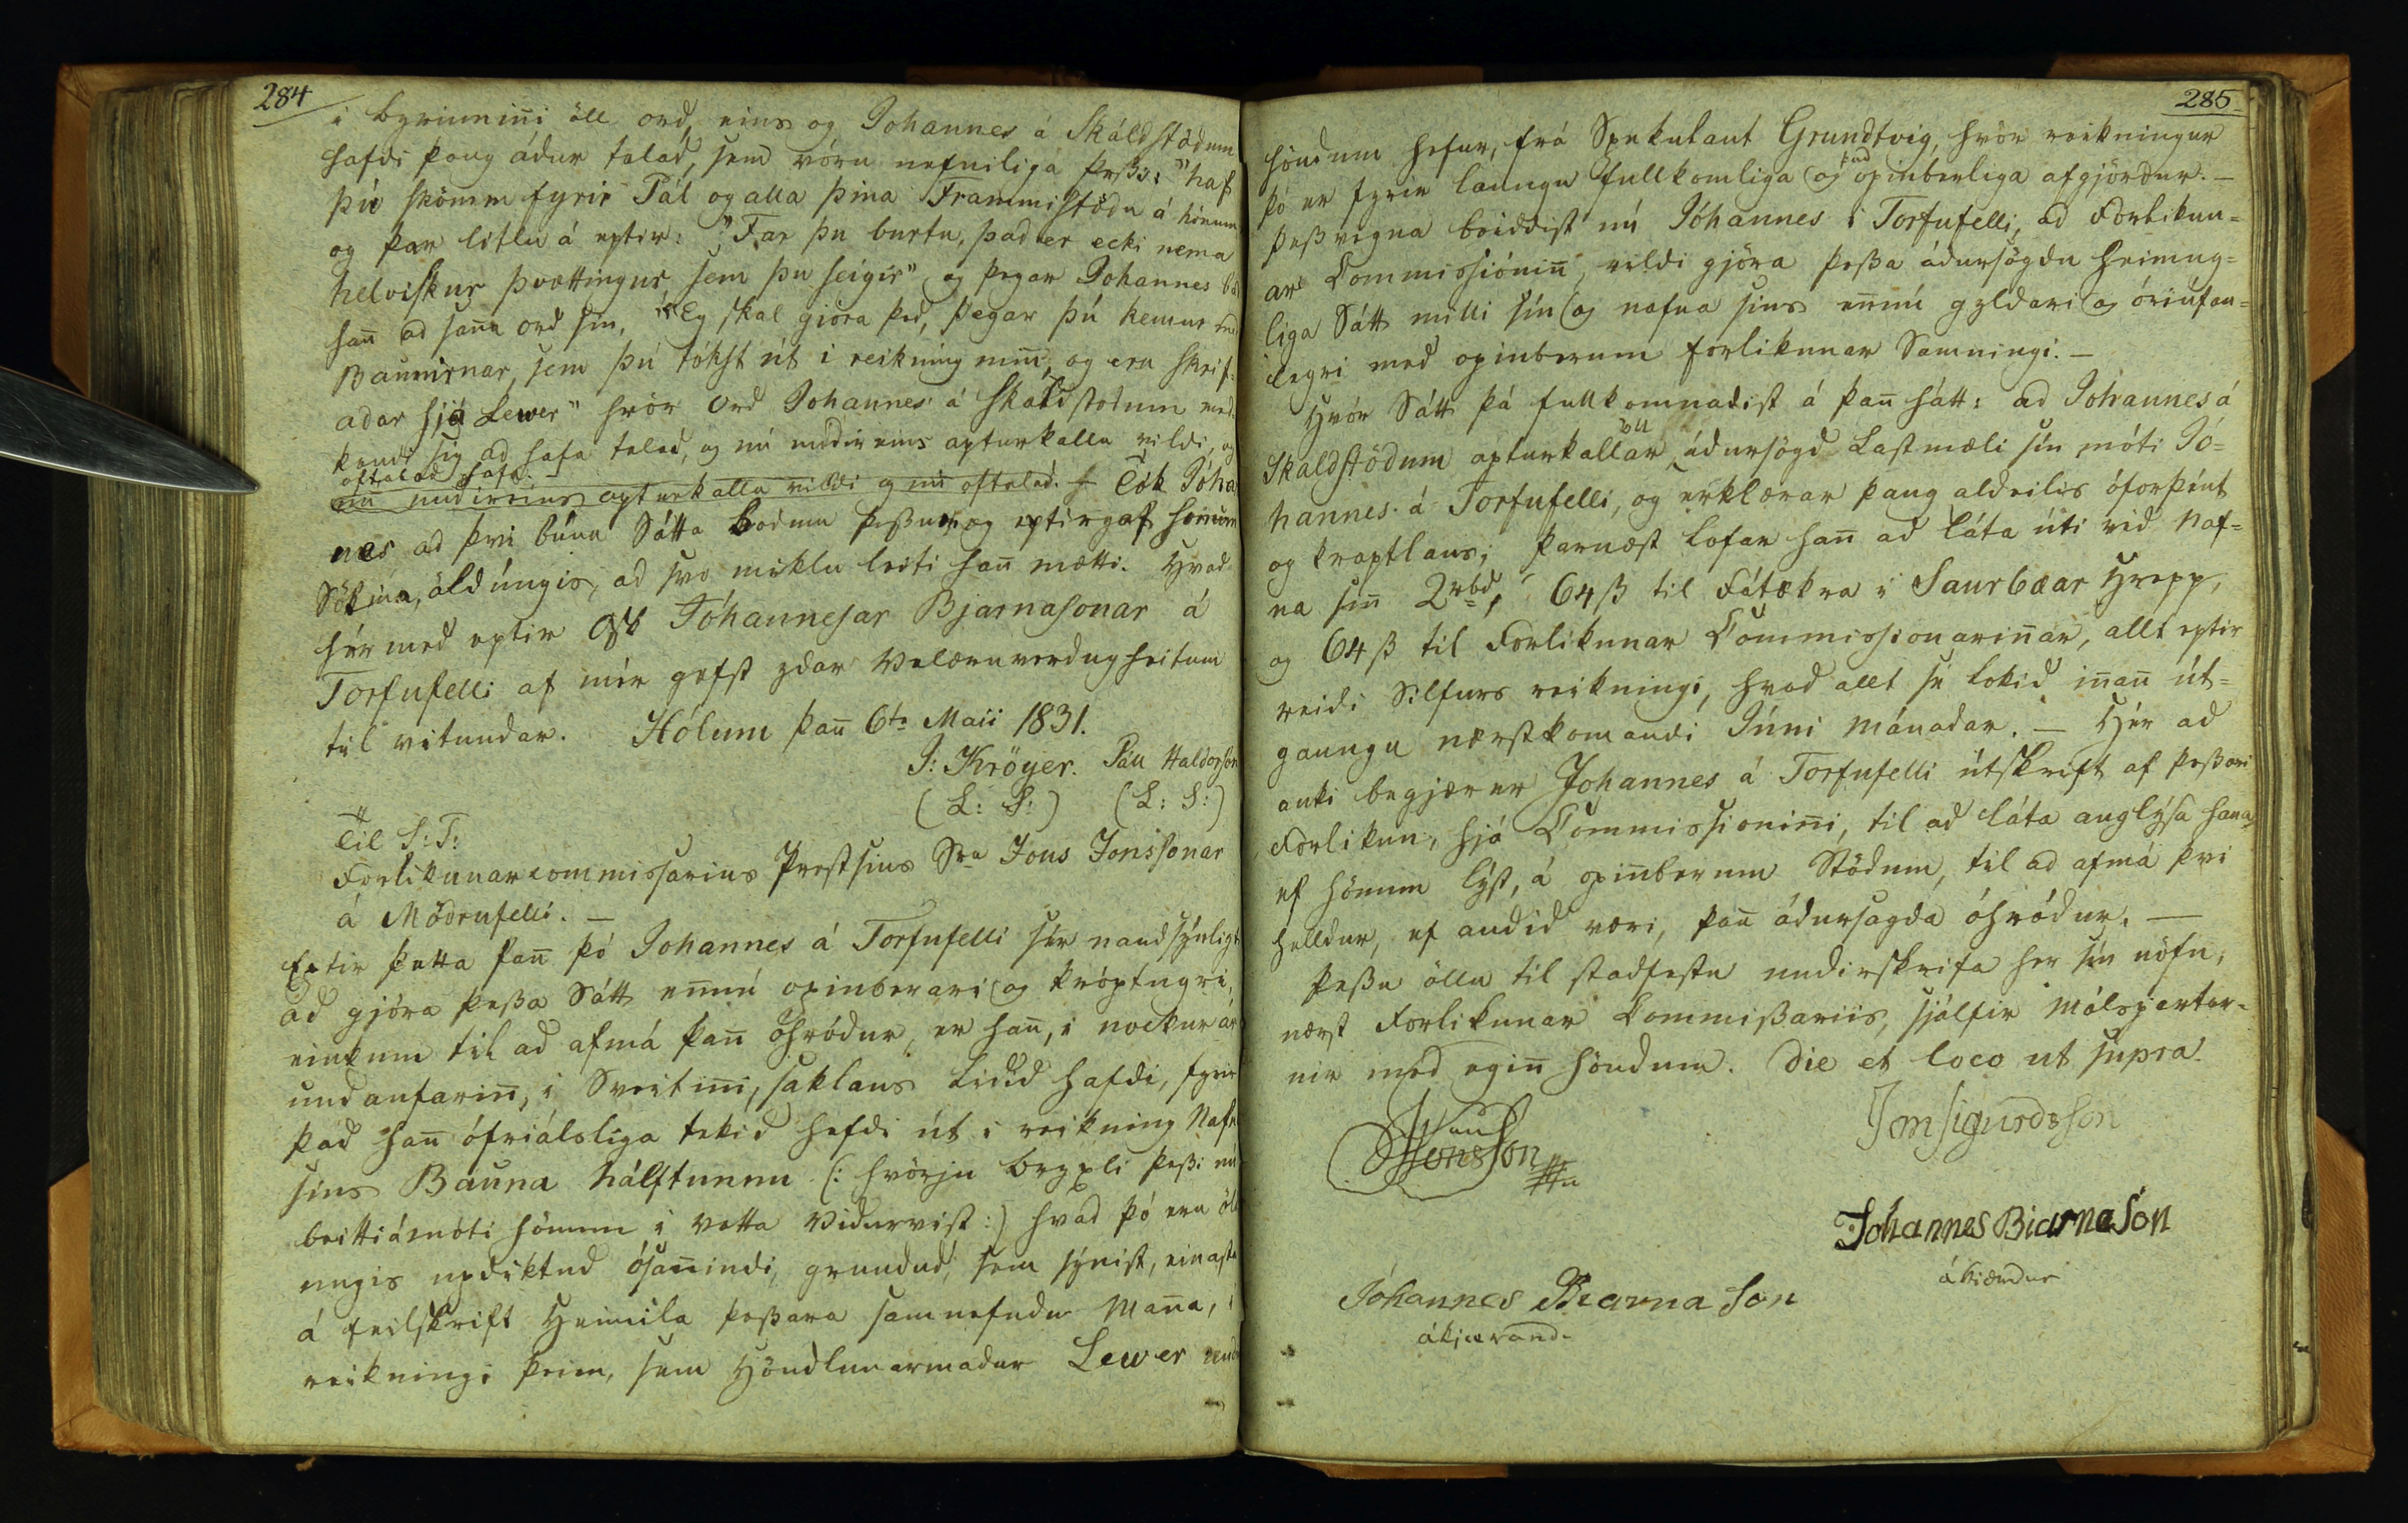 284
i byriunini öll ord, eins og Johannes á Skáldstödum
hafdi þaug ádur talad, sem vóru nefniliga þessi: "haf
þú skömm fyrir Pál og alla þina Frammistödu á hönum
og þar litlu á eptir: "Far þu burtu, þad er ecki nema
helviskur þvættingur sem þu seigir" og þegar Johannes bad
han̄ ad san̄a ord sin, "Eg skal giöra þad, þegar þú kemur med
Baunirnar, sem þú tókst út i reikning min̄, og eru skrif-
adar hjá Lewer" hvör Ord Johannes á Skáldstodum med-
kendi sig ad hafa talad, og nú undireins apturkalla vildi, og
oftalad hafa.
nú undireins apturkalla vildi og nú oftalad. Tók Jóha
nes ad þvi búnu Sátta bodum þessum og eptirgaf hönum
Sökina, öldúngis, ad svo miklu leiti han̄ mætti. Hvad
hér med eptir Ósk Jóhannesar Bjarnasonar á
Torfufelli af mér gefst ydar Velæruverdugheitum
til vitundar. Hólum þan̄ 6ta Maii 1831.
J: Kröyer. Páll Haldorsson
(L: S:) (L: S:)
Til S: T:
Forlikunarcommissarius Prestsins Sra Jons Jonssonar
á Mödrufelli. —
Eptir þetta fan̄ þó Johannes á Torfufelli sér naudsynligt
ad gjöra þessa Sátt en̄nú opinberari og kröptugri,
einkum til ad afmá þan̄ óhródur, er han̄, i nockur ár
undanfarin̄, i Sveitin̄i, saklaus lidid hafdi, fyrir
þad han̄ ófriálsliga tekid hefdi út i reikning Nafn
sins Bauna hálftunnu (: hvörju brygsli þessi nú
beitti ámóti hönum i Votta Vidurvist :) hvad þó eru öld
ungis updiktud ósan̄indi, grundud, sem synist, einasta
á feilskrift Heimila þessara samnefndu Man̄a, i
reikningi þeim, sem Höndlunarmadur Lewer und
285
höndum hefur, frá Spekulant Grundtvig, hvör reikningur
þó er fyrir laungu fullkomliga og opinberliga afgjördur. —
þad
Þess vegna beiddist nú Jóhannes i Torfufelli, ad Forlikun-
ar Commissiónin̄, vildi gjöra þessa ádursögdu heimug-
liga Sátt milli sin og nafna sins en̄nú gyldari og óriufan-
legri med opinberum Forlikunar Samningi. —
Hvör Sátt þá fullkomnadist á þan̄ hátt: ad Jóhannes á
Skaldstödum apturkallar ádursögd Lastmæli sin móti Jó-
öll
hannes á Torfufelli, og erklærar þaug aldeilis óforþént
og kraptlaus; þarnæst lofar han̄ ad láta úti vid Naf-
na sin̄ 2rbd, 64 ß til Fátækra i Saurbæar Hrepp,
og 64 ß til Forlikunar Commissionarin̄ar, allt eptir
reidi Silfurs reikningi, hvad allt sé lokid in̄an út-
gaungu næstkomandi Júni Mánadar. — Hér ad
auki begjærer Johannes á Torfufelli útskrift af þessari
Forlikun, hjá Commissionin̄i, til ad láta auglýsa hana,
ef hönum lyst, á opinberum Stödum, til ad afmá þvi
helldur, ef audid væri, þan̄ ádursagda óhródur. —
Þessu öllu til stadfestu undirskrifa hér sin nöfn,
næst Forlikunar Commissariis, sjálfir Málspartar-
nir med egin̄ höndum. Die et loco ut supra.
Jon Jonsson
Jon Sigurdsson
Johannes Biarnason
ákiærdur
Jóhannes Biarnason
ákjærand-